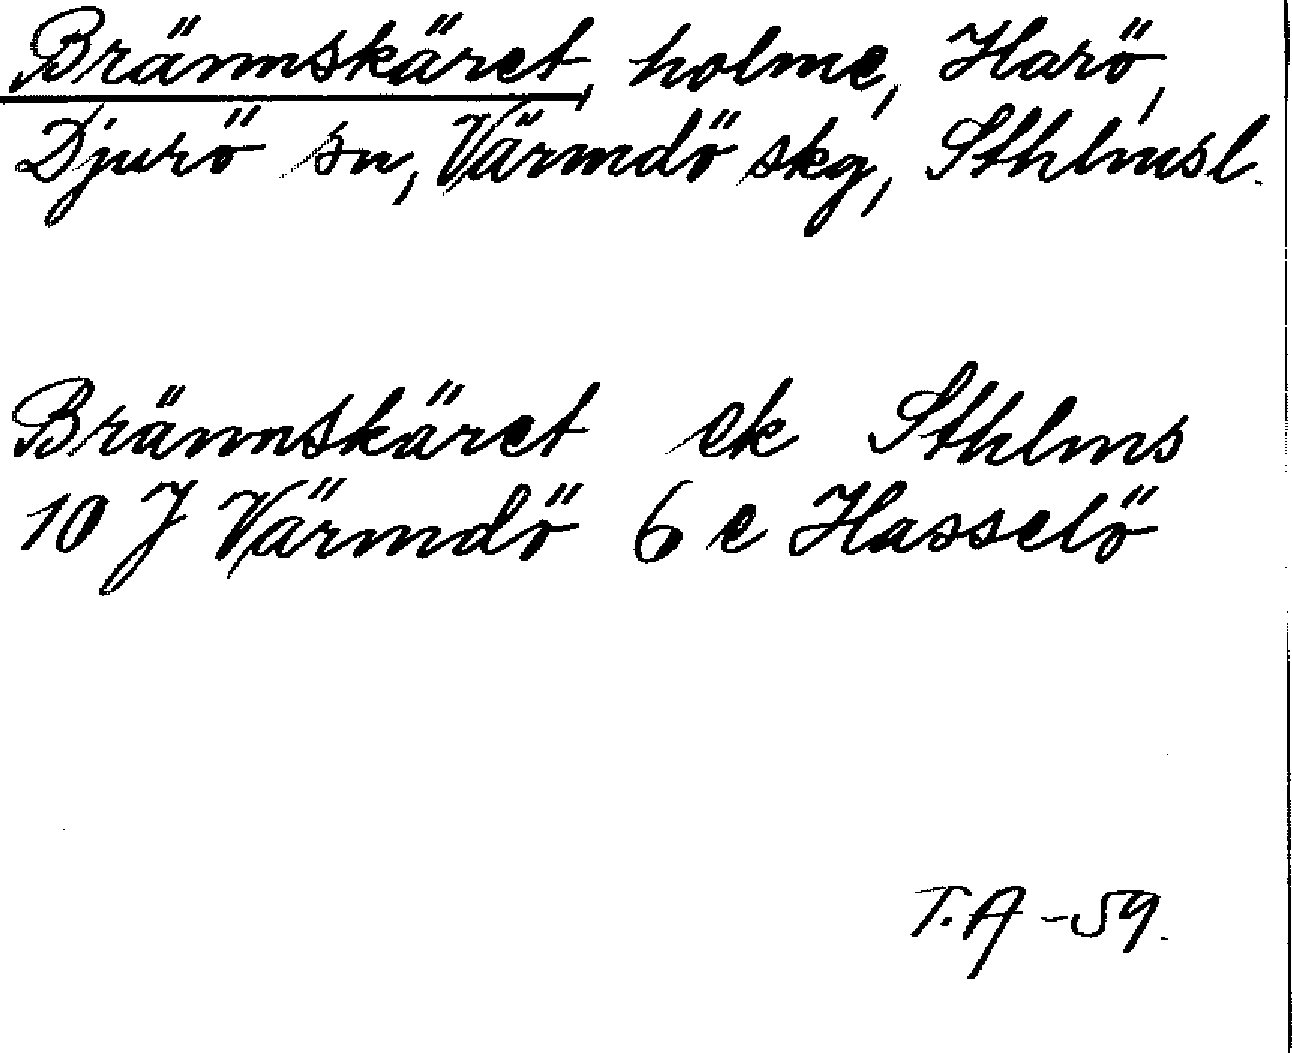 Brännskäret, holme, Harö,
Djurö sn, Värmdö skg, Sthlmsl.
Brännskäret ek Sthlms
10 J Värmdö 6 e Hasselö
T.A -59.